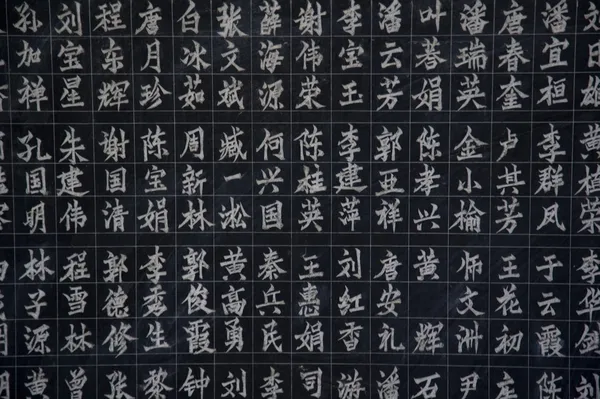 孙加祥
刘宝星
程东辉
唐月珍
白冰茹
张文斌
薛海源
谢伟荣
李宝玉
潘云芳
叶娟
潘瑞英
唐春奎
宜桓
雄
孔国明
朱建伟
谢国清
陈宝娟
周新林
臧一淞
何兴国
陈桂英
李建萍
郭亚祥
陈孝兴
金小榆
卢其芳
李群凤
黄桂荣
林子源
程雪林
郭德修
李秀生
郭俊霞
黄高勇
秦兵民
王惠娟
刘红香
唐安礼
黄辉
师文洲
王花初
于云霞
李华剑
黄
曾
张
黎
钟
刘
李
司
游
潘
石
尹
陈
刘